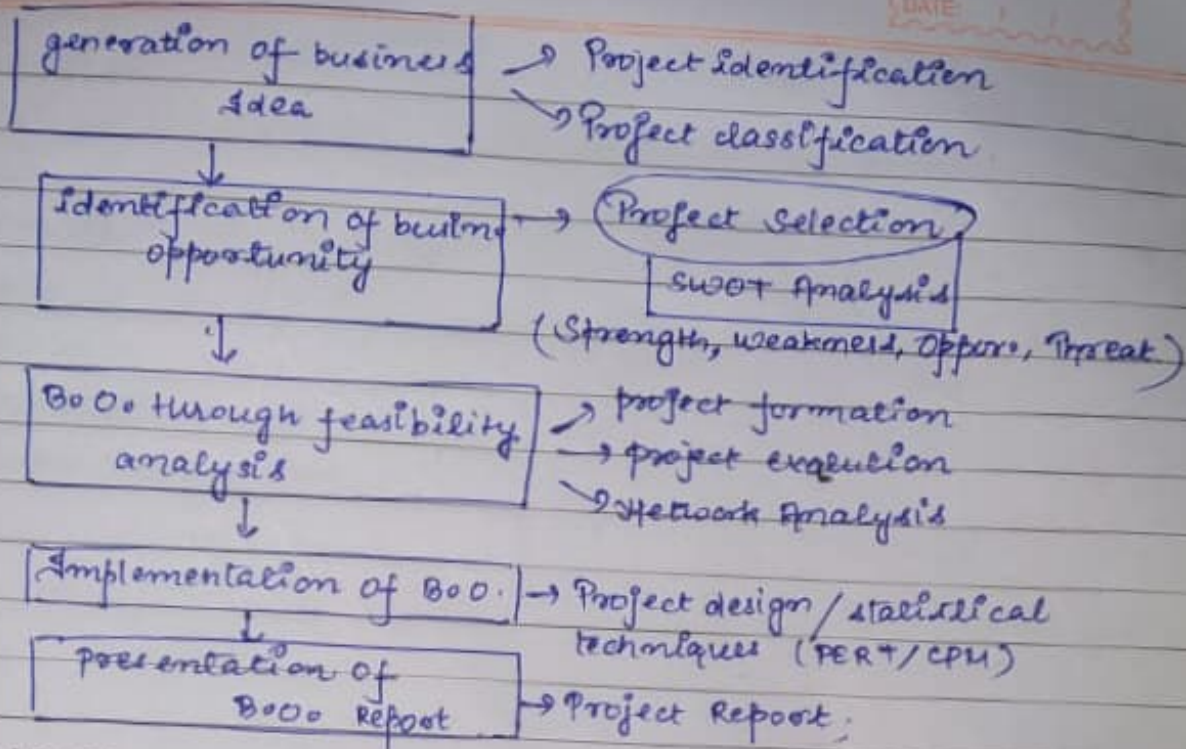 DATE
generation of business
Idea
→ Project identification
→ Project classification
↓
identification of busin.
opportunity
→ Project Selection
SWOT Analysis
(Strength, weakness, Oppor., Threat)
↓
B.O. through feasibility
analysis
→ project formation
→ project exqeution
→ Network Analysis
↓
Implementation of B.O.
→ Project design / statistical
techniques (PERT/CPM)
↓
presentation of
B.O. Report
→ Project Report.